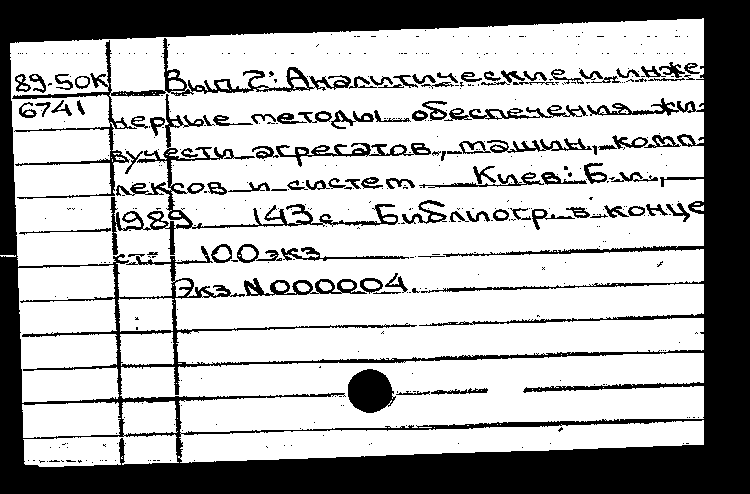 89-50К Вып.2: Аналитические и инже-
6741 нерные методы обеспечения жи-
вучести агрегатов, машин, комп-
лексов и систем. Киев: Б.и.,
1989. 143с. Библиогр. в конце
ст. 100 экз.
Экз. N000004.